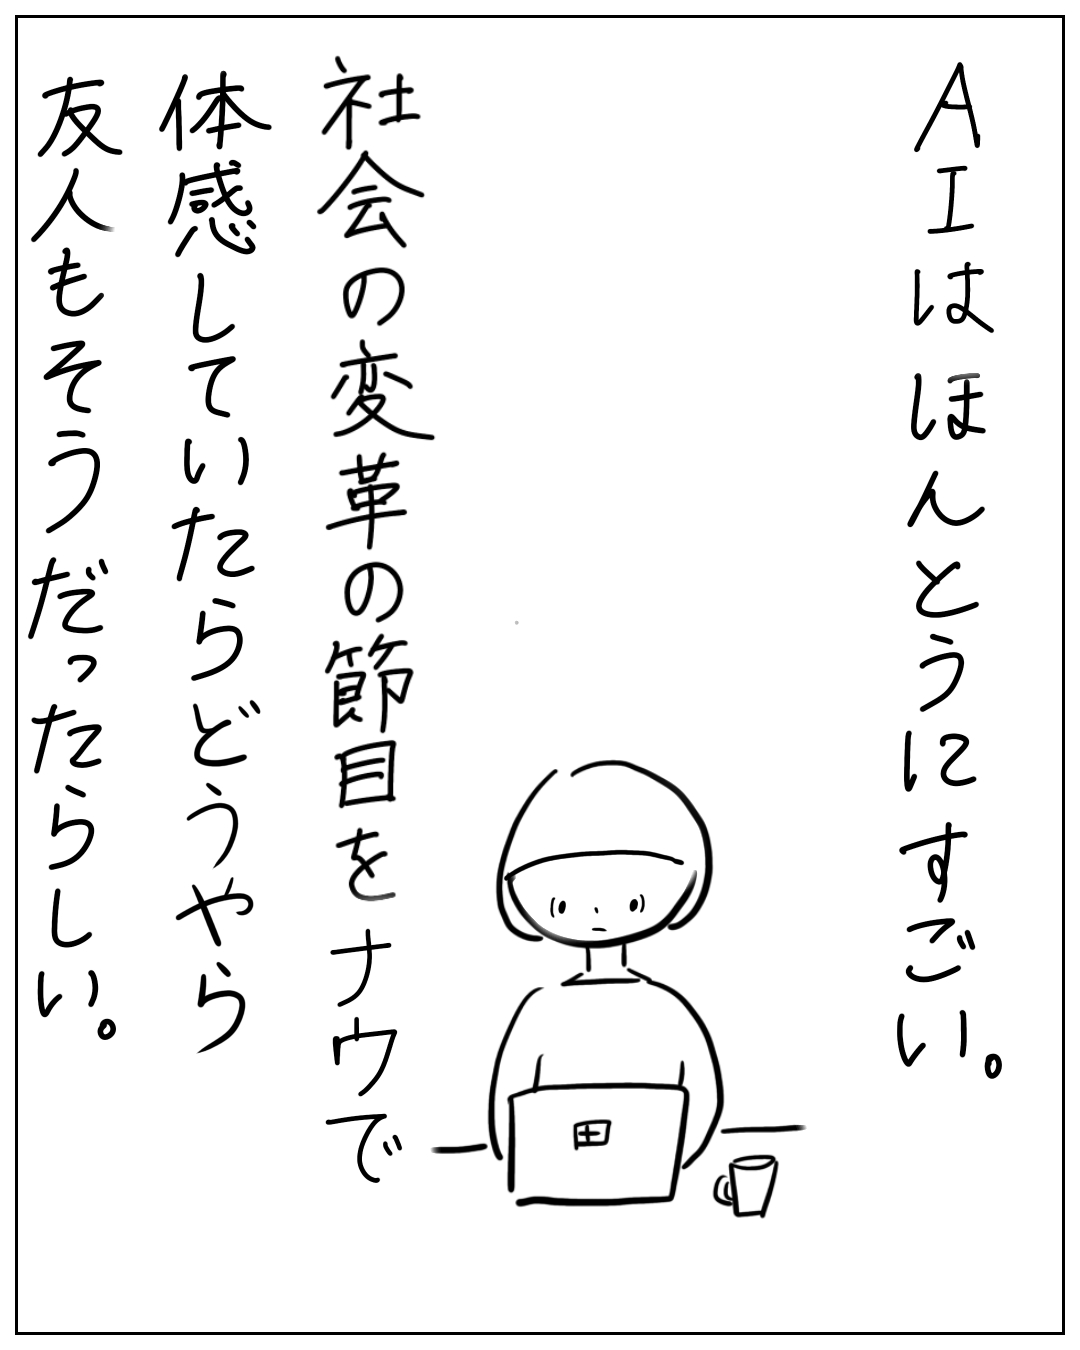 AIはほんとうにすごい。
社会の変革の節目をナウで
体感していたらどうやら
友人もそうだったらしい。